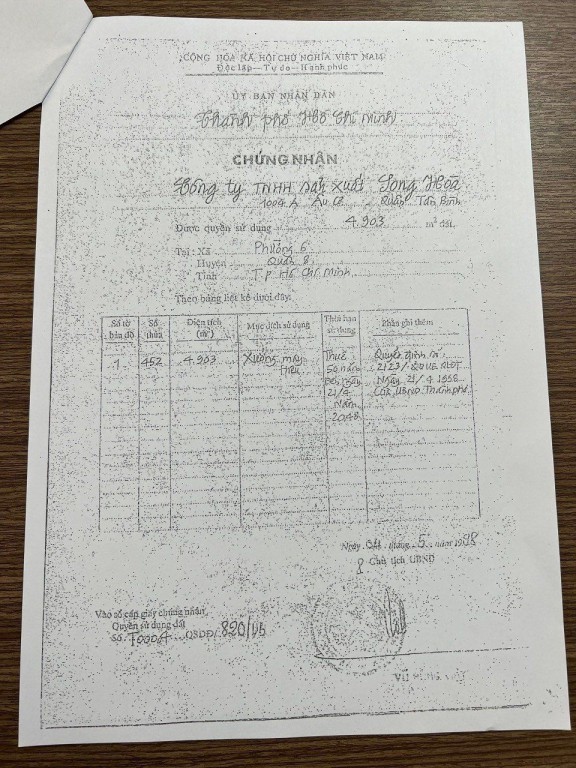 CỘNG HÒA XÃ HỘI CHỦ NGHĨA VIỆT NAM
Độc lập — Tự do — Hạnh phúc
ỦY BAN NHÂN DÂN
Thành phố Hồ Chí Minh
CHỨNG NHẬN
Công ty TNHH Sản Xuất Song Hòa
1004 A Âu Cơ Quận Tân Bình
Được quyền sử dụng 4.903 m² đất.
Tại : Xã Phường 6
Huyện Quận 8
Tỉnh T.P Hồ Chí Minh
Theo bảng liệt kê dưới đây:
Số tờ bản đồ | Số thửa | Diện tích (m²) | Mục đích sử dụng | Thời hạn sử dụng | Phần ghi thêm
1 | 452 | 4.903 | Xưởng may | Thuê | Quyết định số
50 năm 2123/
Ngày 21/4 1998
21/4 của UBND Thành phố
Năm
2048
Ngày 04 tháng 5 năm 1998
Chủ tịch UBND
Vào sổ cấp giấy chứng nhận
Quyền sử dụng đất
Số QSDĐ/ 820/